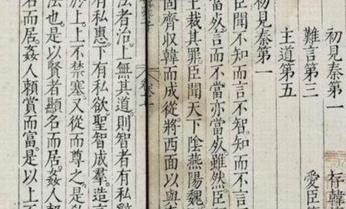 初見秦第一 存韓
難言第三 愛臣
主道第五
初見秦第一
臣聞不知而言不智知而不言
當死言而不當亦當死雖然臣
王裁其罪臣聞天下陰燕陽魏
固齊收韓而成從將西面以與
法者治上無其道則智者有私
有私惠下有私欲聖智成羣造
於上上不禁塞又從而尊之是
法也是以賢者顯名而居姦人
名而居姦人賴賞而富是以上